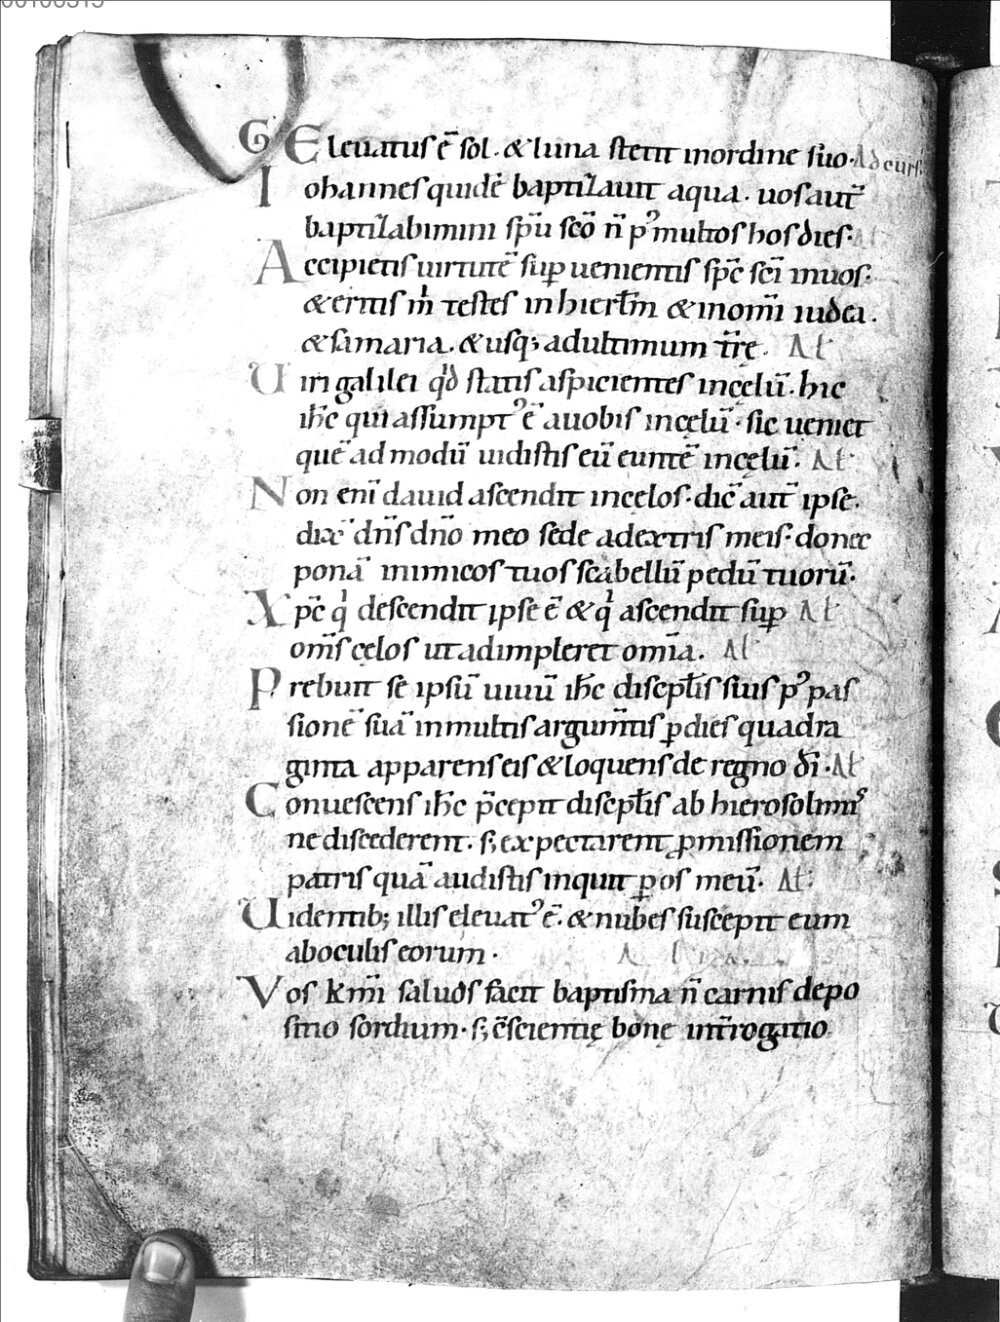 G Eleuatus ē sol. & luna stetit inordine suo. Ad curs.
Iohannes quidē baptizauit aqua. uos aut̄
baptizabimini sp̄u sc̄o n̄ p' multos hos dies.
Accipietis uirtutē suꝑ uenientis sp̄c sc̄i inuos.
& eritis m̄ testes in hierl̄m & inom̄i iudea.
& samaria. & usq; adultimum t̄rę. Al̄
Uiri galilei qd̄ statis aspicientes incęlū. hic
ih̄c qui assumpt' ē auobis incęlū. sic ueniet
quē ad modū uidistis eū euntē incęlū. Al̄
Non enī dauid ascendit incęlos. dic̄ aut̄ ipse.
dix̄ dn̄s dn̄o meo sede adextris meis. donec
ponā inimicos tuos scabellū pedū tuorū.
Xp̄c q' descendit ipse ē & q' ascendit suꝑ Al̄
om̄s cęlos ut adimpleret om̄ia. Al̄
Prebuit se ipsū uiuū ih̄c discipl̄is suis p' pas
sionē suā inmultis argum̄tis ꝑ dies quadra
ginta apparens eis & loquens de regno d̄i. Al̄
Conuescens ih̄c p̄cepit discipl̄is ab hierosolimis
ne discederent. s; expectarent ꝓmissionem
patris quā audistis inquit ꝑ os meū. Al̄
Uidentib; illis eleuat' ē. & nubes suscepit eum
aboculis eorum.
Vos km̄i saluos facit baptisma n̄ carnis depo
sitio sordium. s; c̄scientię bonę int̄rogatio